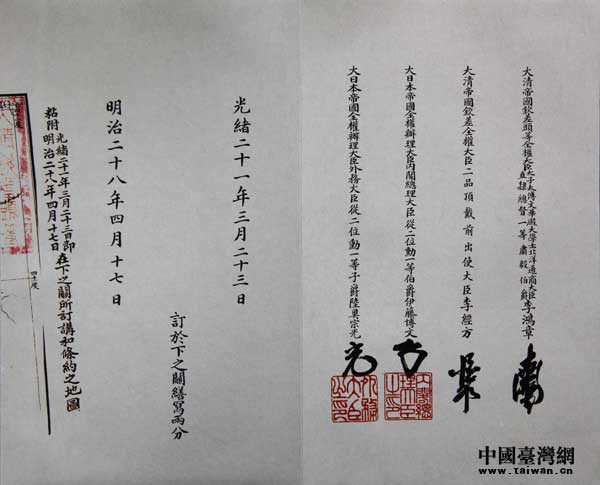 大清帝國欽差頭等全權大臣太子太傅文華殿大學士北洋通商大臣直隸總督一等肅毅伯爵李鴻章
大清帝國欽差全權大臣二品頂戴前出使大臣李經方
大日本帝國全權辦理大臣內閣總理大臣從二位勳一等伯爵伊藤博文
大日本帝國全權辦理大臣外務大臣從二位勳一等子爵陸奧宗光
光緒二十一年三月二十三日
明治二十八年四月十七日
訂於下之關繕寫兩分
粘附光緒二十一年三月二十三日即明治二十八年四月十七日在下之關所訂講和條約之地圖
中國臺灣網
www.taiwan.cn